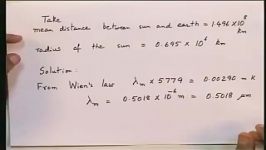 Take
mean distance between sun and earth = 1.496 x 10^8 km
radius of the sun = 0.695 x 10^6 km
Solution:
From Wien's law λm x 5779 = 0.00290 m-K
λm = 0.5018 x 10^-6 m = 0.5018 μm